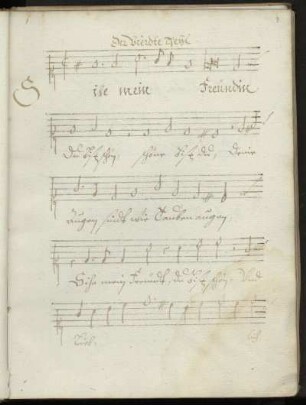 Der Vierdte Theil
Sihe mein Freundin
Du bist schön, schöne bist du, Deine
Augen sindt wie Tauben augen
Sihe mein Freundt, du bist schön, Vnd